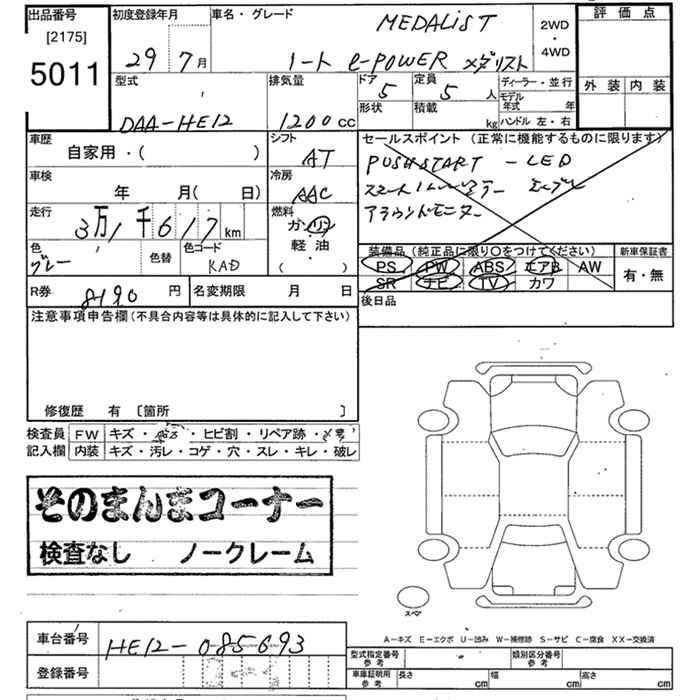 出品番号
[2175]
5011
初度登録年月
29年 7月
車名・グレード
MEDALiST
ノート e-POWER メダリスト
2WD
・
4WD
評価点
外装 内装
型式
DAA-HE12
排気量
1200cc
ドア 5
定員 5人
形状
積載 kg
ディーラー・並行
モデル年式 年
ハンドル 左・右
車歴
自家用・( )
シフト
AT
車検
年 月( 日)
冷房
AAC
走行
3万1千617km
燃料
ガソリン
軽油
・( )
色
グレー
色替
色コード
KAD
R券 8190円
名変期限 月 日
セールスポイント (正常に機能するものに限ります)
PUSHSTART - LED
アラウンドモニター
装備品 (純正品に限り○をつけてください)
新車保証書
PS PW ABS エアB AW
SR ナビ TV カワ
有・無
後日品
注意事項申告欄(不具合内容等は具体的に記入して下さい)
修復歴 有 〔箇所 〕
検査員記入欄
FW キズ・ ・ヒビ割・リペア跡・
内装 キズ・汚レ・コゲ・穴・スレ・キレ・破レ
そのまんまコーナー
検査なし ノークレーム
スペア
A-キズ E-エクボ U-凹み W-補修跡 S-サビ C-腐食 XX-交換済
車台番号 HE12-085693
登録番号
型式指定番号 参考
類別区分番号 参考
車庫証明用 参考
長さ cm 幅 cm 高さ cm